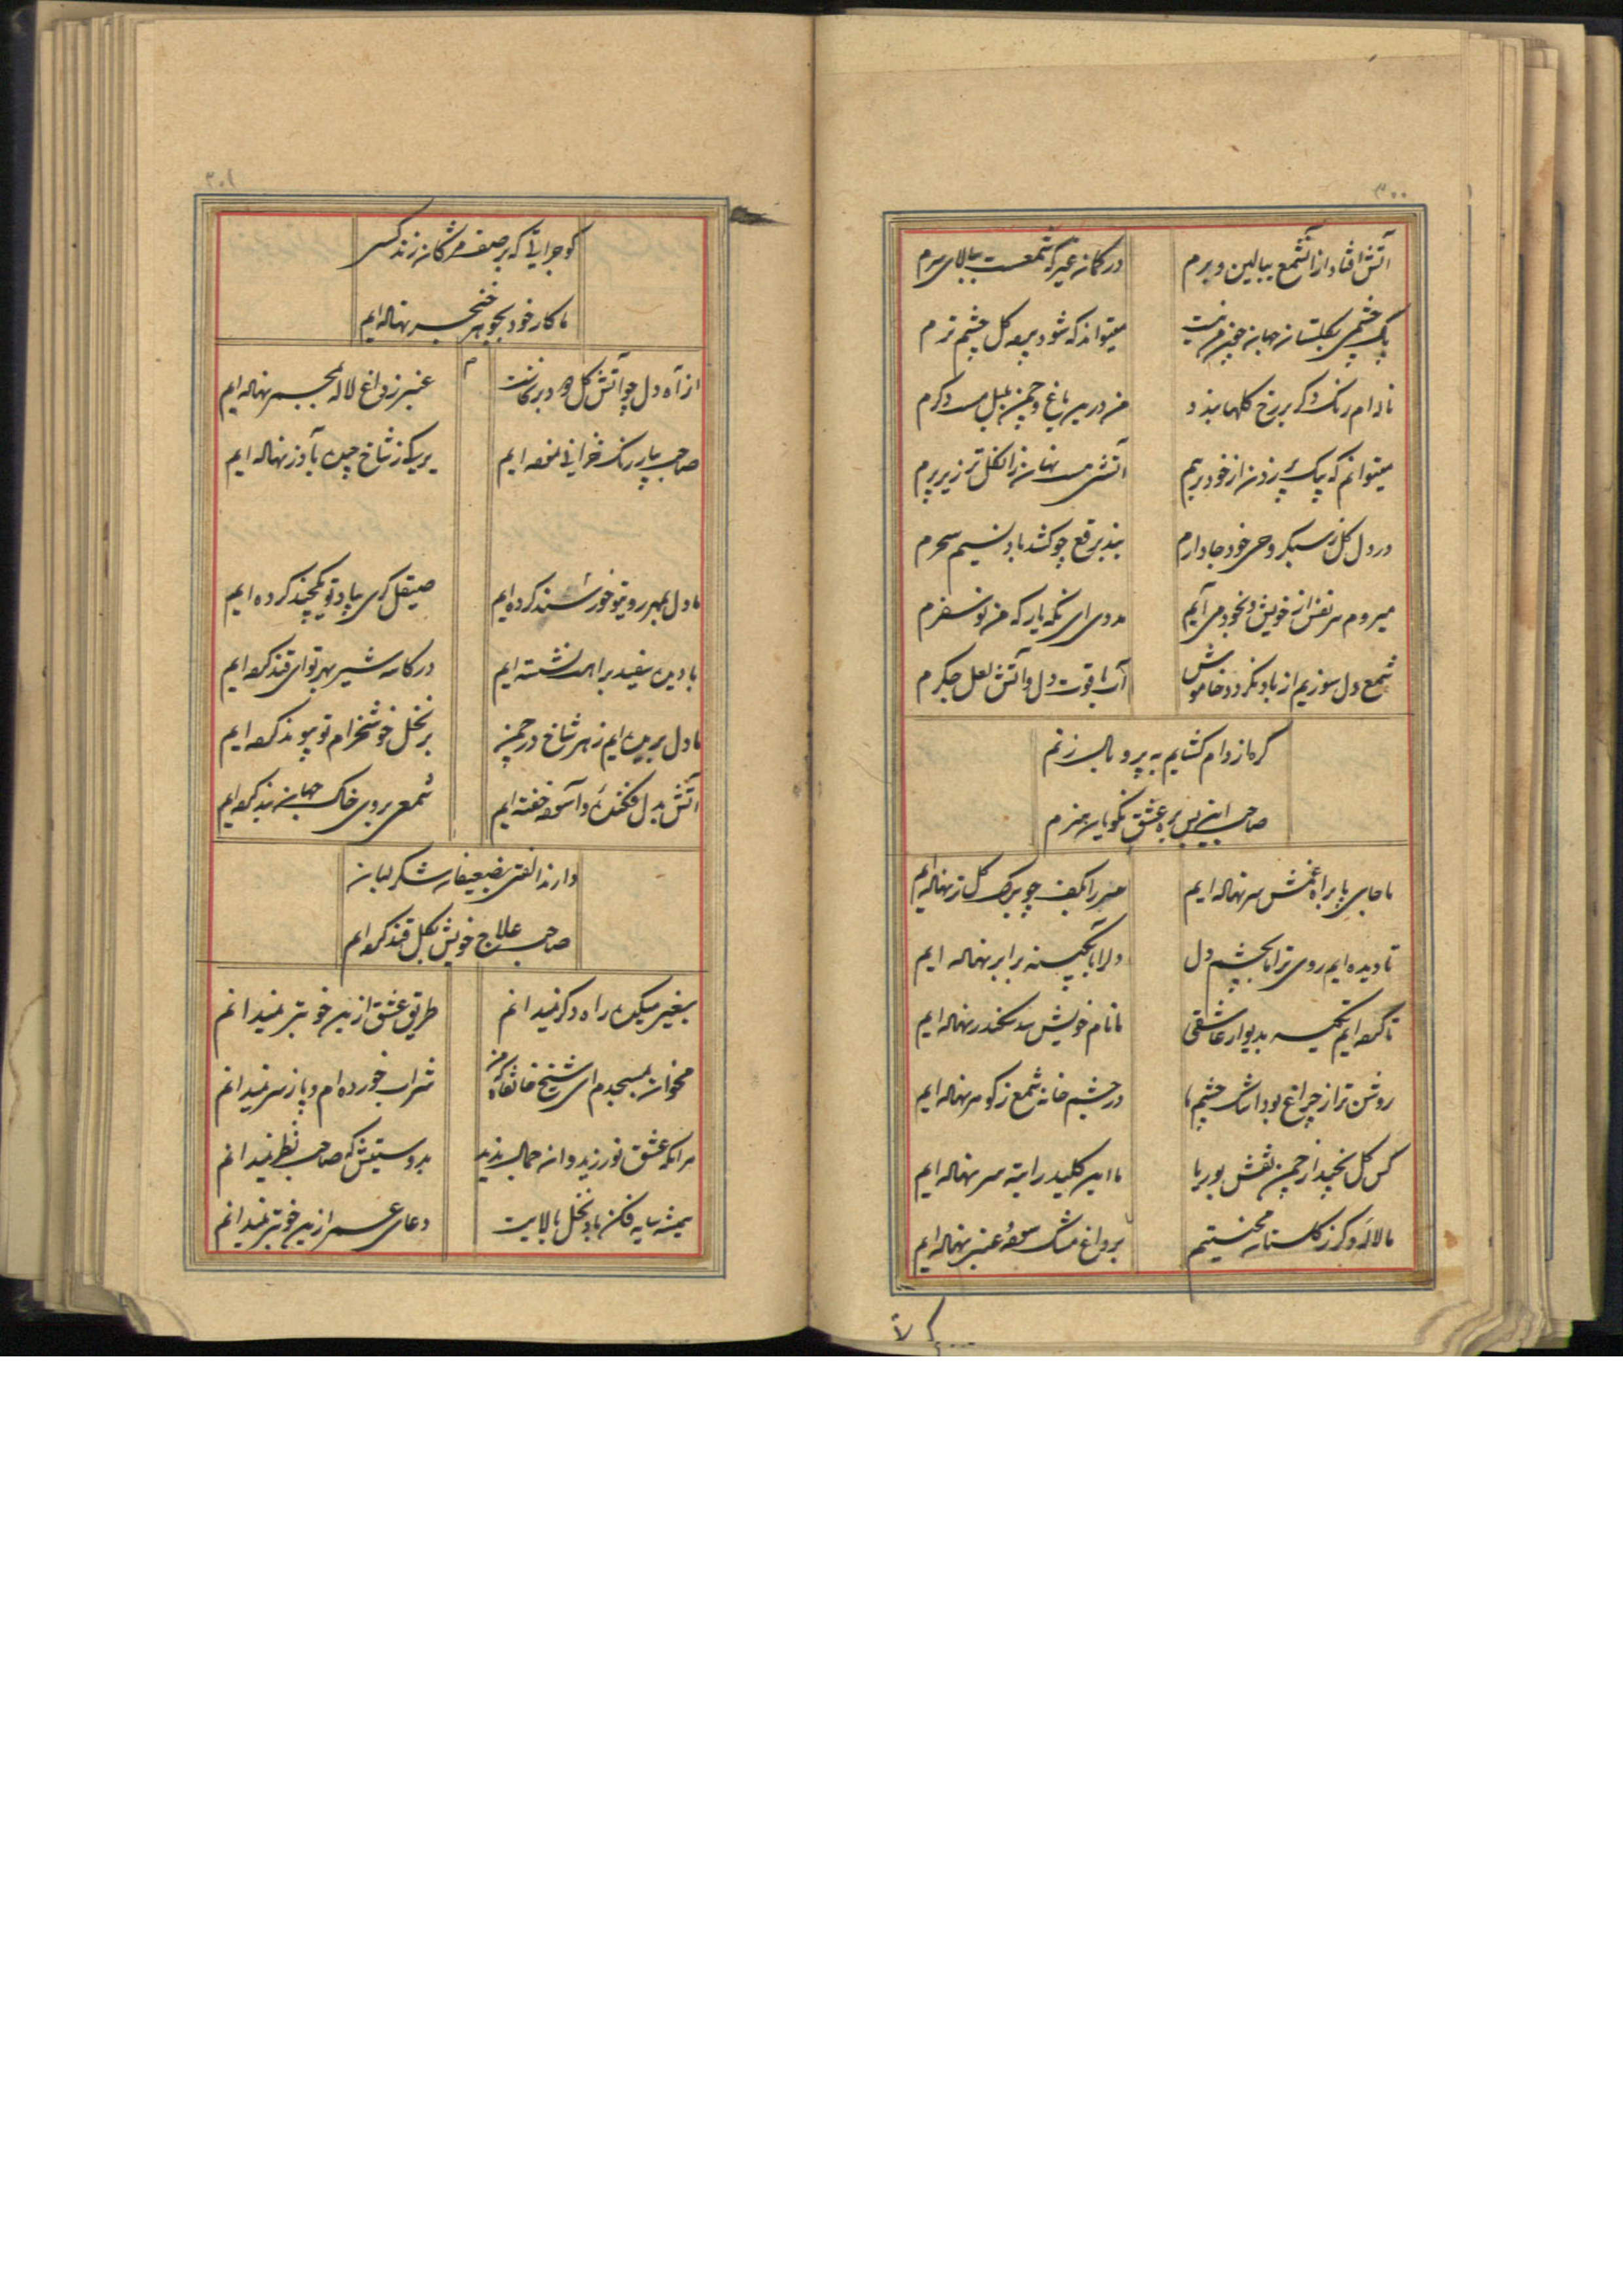 ۳۰۰
آتش افتاد از آنشمع ببالین و برم
در کمانم غیر که شمعست ببالای سرم
پاک چشمی بگلستان جهان چون من نیست
میتواند که شود پرده گل چشم ترم
ناله‌ام رنگ دگر بر رخ گلها بندد
من درین باغ و چمن بلبل دگرم
میتوانم که بیک پر زدن از خود بریم
آتشی هست نهان زان گل تر زیر پرم
در دل گل ز سبکروحی خود جا دارم
بند برقع چو گشاد باد نسیم سحرم
میروم هر نفس از خویش و بخود می آیم
مددی ای نگه یار که من نو سفرم
شمع دل سوزیم از باد نگردد خاموش
آب یاقوت دل و آتش لعل جگرم
گره از دام گشایم به پر و بال زنم
صاحب این بس بره عشق نکویان هنرم
ما جای پا براه غمش سر نهاده ایم
سر را بکف چو برگ گل تر نهاده ایم
تا دیده ایم روی ترا ما بچشم دل
دل را بآبگینه برابر نهاده ایم
تا کرده ایم تکیه بدیوار عاشقی
ما نام خویش سد سکندر نهاده ایم
روشن تر از چراغ بود اشک چشم ما
در چشم خانه شمع ز گوهر نهاده ایم
کس گل نچید از چمن نقش بوریا
ما این کلید را بته سر نهاده ایم
ما لاله دگر ز گلستان محنتیم
بر داغ مشک سوده عنبر نهاده ایم
۳۰۱
کو جرأتی که بر صف مژگان زند کسی
ما کار خود بجوهر خنجر نهاده ایم
از آه دل چو آتش گل دود برنخاست
عنبر ز داغ لاله بمجمر نهاده ایم
م
صاحب بپا رنگ خزانی نموده ایم
بر یک ز شاخ چیده بآذر نهاده ایم
ما دل بمهر روی تو خورسند کرده ایم
صیقل گری بیاد تو یکچند کرده ایم
با دیده سفید براهت نشسته ایم
در کاسه شیر بهر تو ای قند کرده ایم
ما دل بریده ایم ز هر شاخ در چمن
بر نخل خوشخرام تو پیوند کرده ایم
آتش بدل فکنده و آسوده خفته ایم
شمعی بروی خاک جهان بند کرده ایم
دارند الفتی بضعیفان شکر لبان
صاحب علاج خویش بگل قند کرده ایم
بغیر میکده راه دگر نمیدانم
طریق عشق ازین خوبتر نمیدانم
مخوان بمسجدم ای شیخ خانقاه که من
شراب خورده ام و پا ز سر نمیدانم
هر آنکه عشق نورزید و آن جمال ندید
بدوستیش که صاحب نظر نمیدانم
همیشه سایه فکن باد نخل بالایت
دعای عمر ازین خوبتر نمیدانم